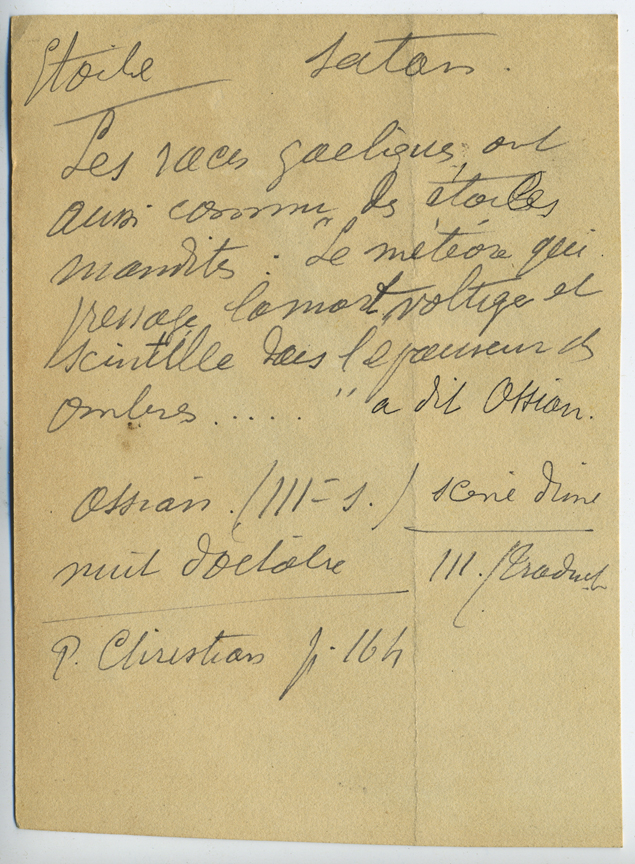 Etoile Satan.
Les races gaeliques ont
aussi connu des étoiles
maudites : "Le météore qui
présage la mort voltige et
scintille dans l'épaisseur des
ombres ..... " a dit Ossian.
Ossian. (III= s.) scène d'une
nuit d'octobre III. (Traduct
P. Christian p. 164